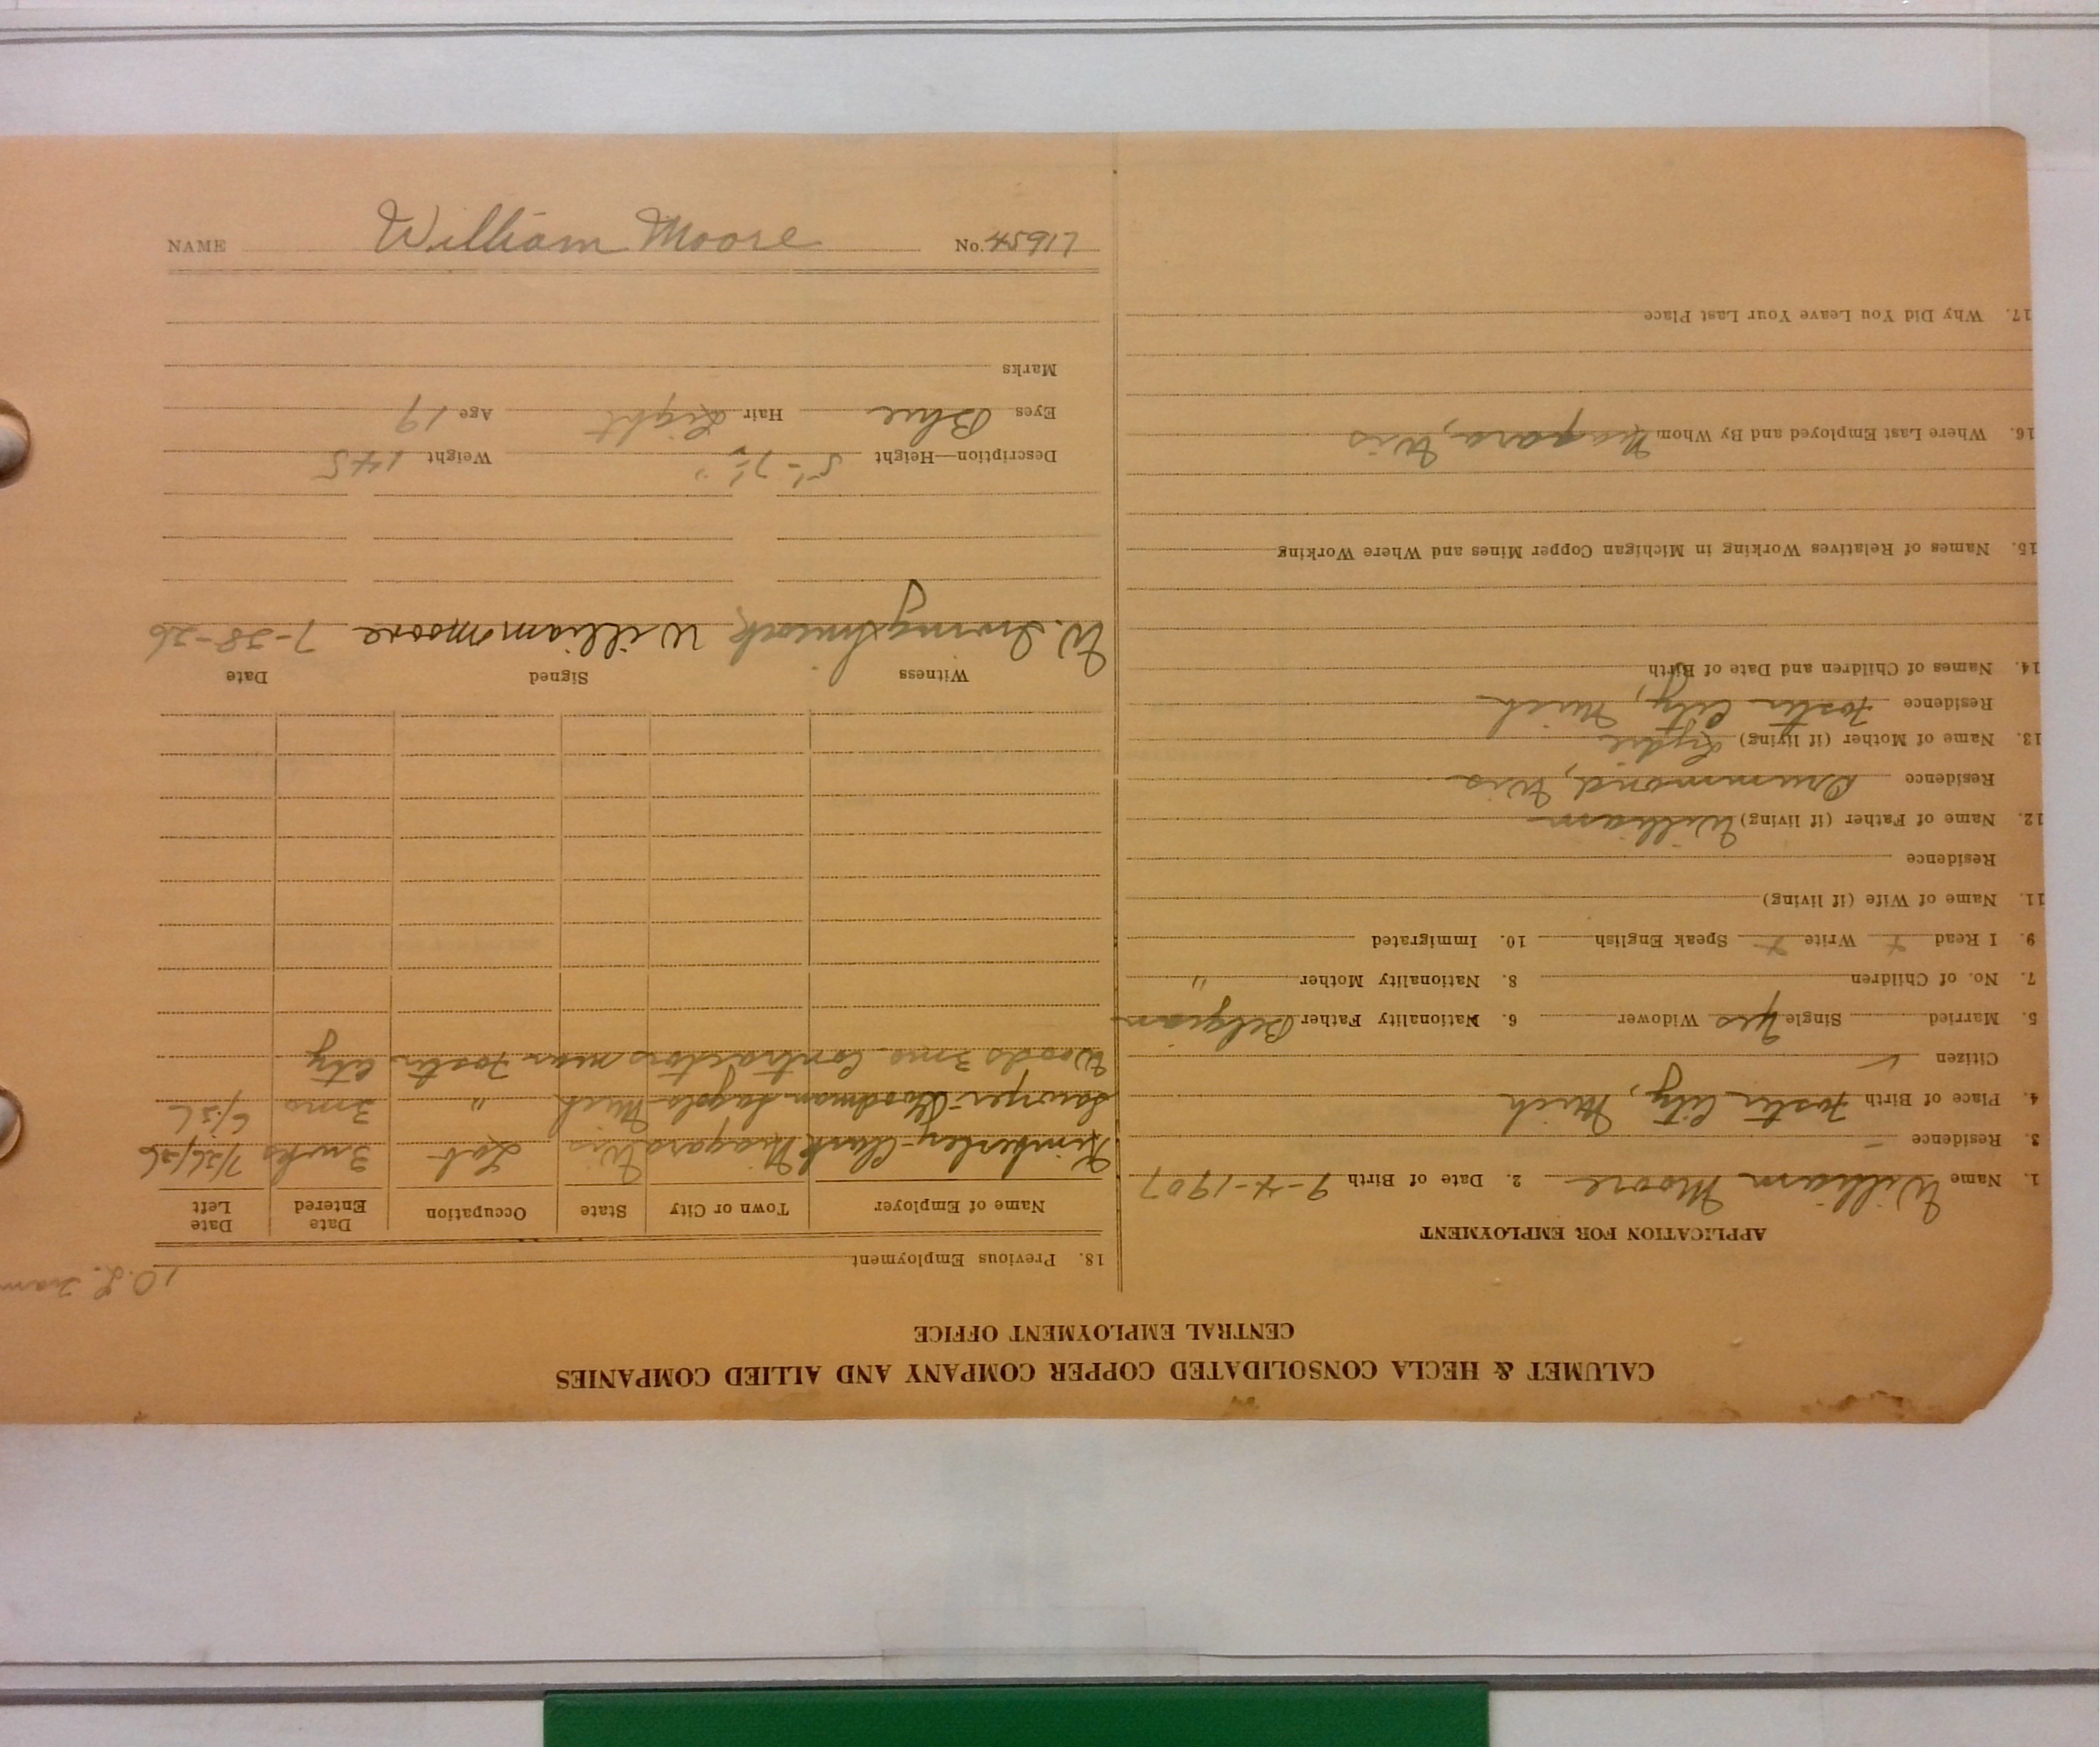 CALUMET & HECLA CONSOLIDATED COPPER COMPANY AND ALLIED COMPANIES
CENTRAL EMPLOYMENT OFFICE
APPLICATION FOR EMPLOYMENT
1. Name William Moore 2. Date of Birth 9-4-1907
3. Residence
4. Place of Birth Foster City, Mich
Citizen ✓
5. Married Single Yes Widower 6. Nationality Father Belgian
7. No. of Children 8. Nationality Mother "
9. I Read + Write + Speak English 10. Immigrated
11. Name of Wife (if living)
Residence
12. Name of Father (if living) William
Residence Drummond, Wis
13. Name of Mother (if living)
Residence Foster City, Mich
14. Names of Children and Date of Birth
15. Names of Relatives Working in Michigan Copper Mines and Where Working
16. Where Last Employed and By Whom Niagara, Wis
17. Why Did You Leave Your Last Place
O.L. Tram
18. Previous Employment
Name of Employer Town or City State Occupation Date Entered Date Left
Kimberley-Clark Niagara Wis Lab 3 wks 7/26/26
Sawyer-Goodman Sagola Mich " 3 mo
Woods 3 mo Contractors near Foster City
Witness Signed Date
W. Irving William Moore 7-28-26
Description—Height 5'-7½" Weight 145
Eyes Blue Hair Light Age 19
Marks
NAME William Moore No.